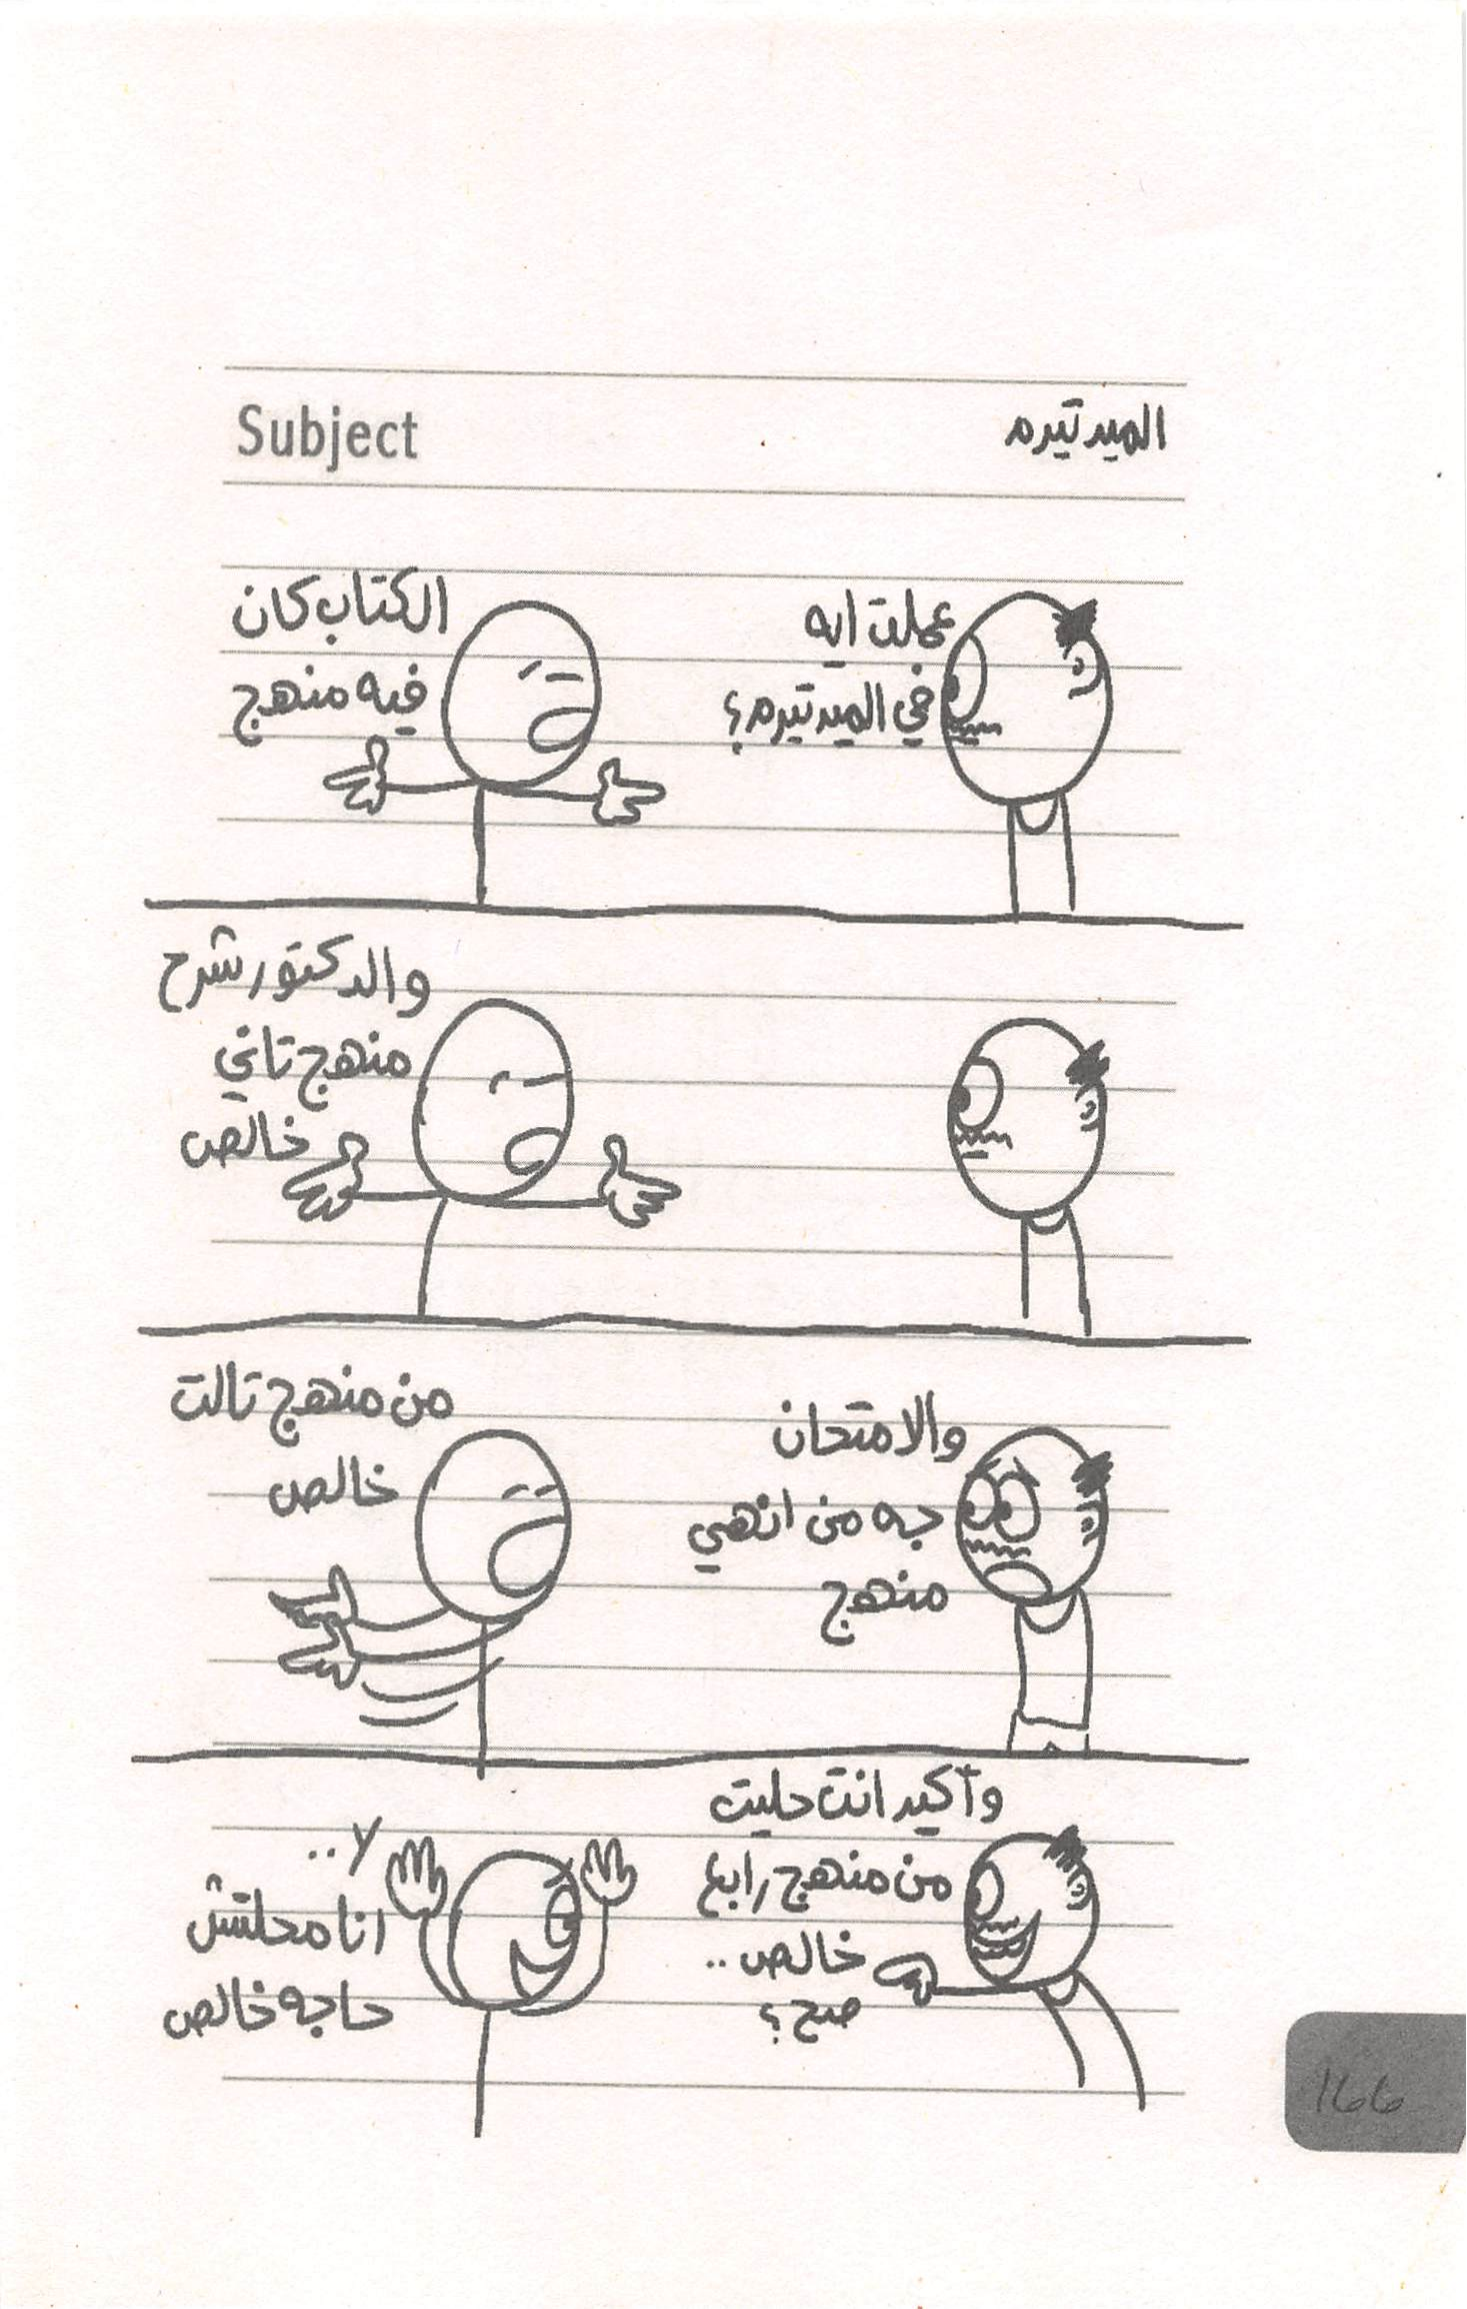 Subject
الميدتيرم
عملت ايه
في الميدتيرم؟
الكتاب كان
فيه منهج
والدكتور شرح
منهج تاني
خالص
والامتحان
جه من انهي
منهج
من منهج تالت
خالص
وأكيد انت حليت
من منهج رابع
خالص..
صح؟
لا..
انا محلتش
حاجه خالص
166